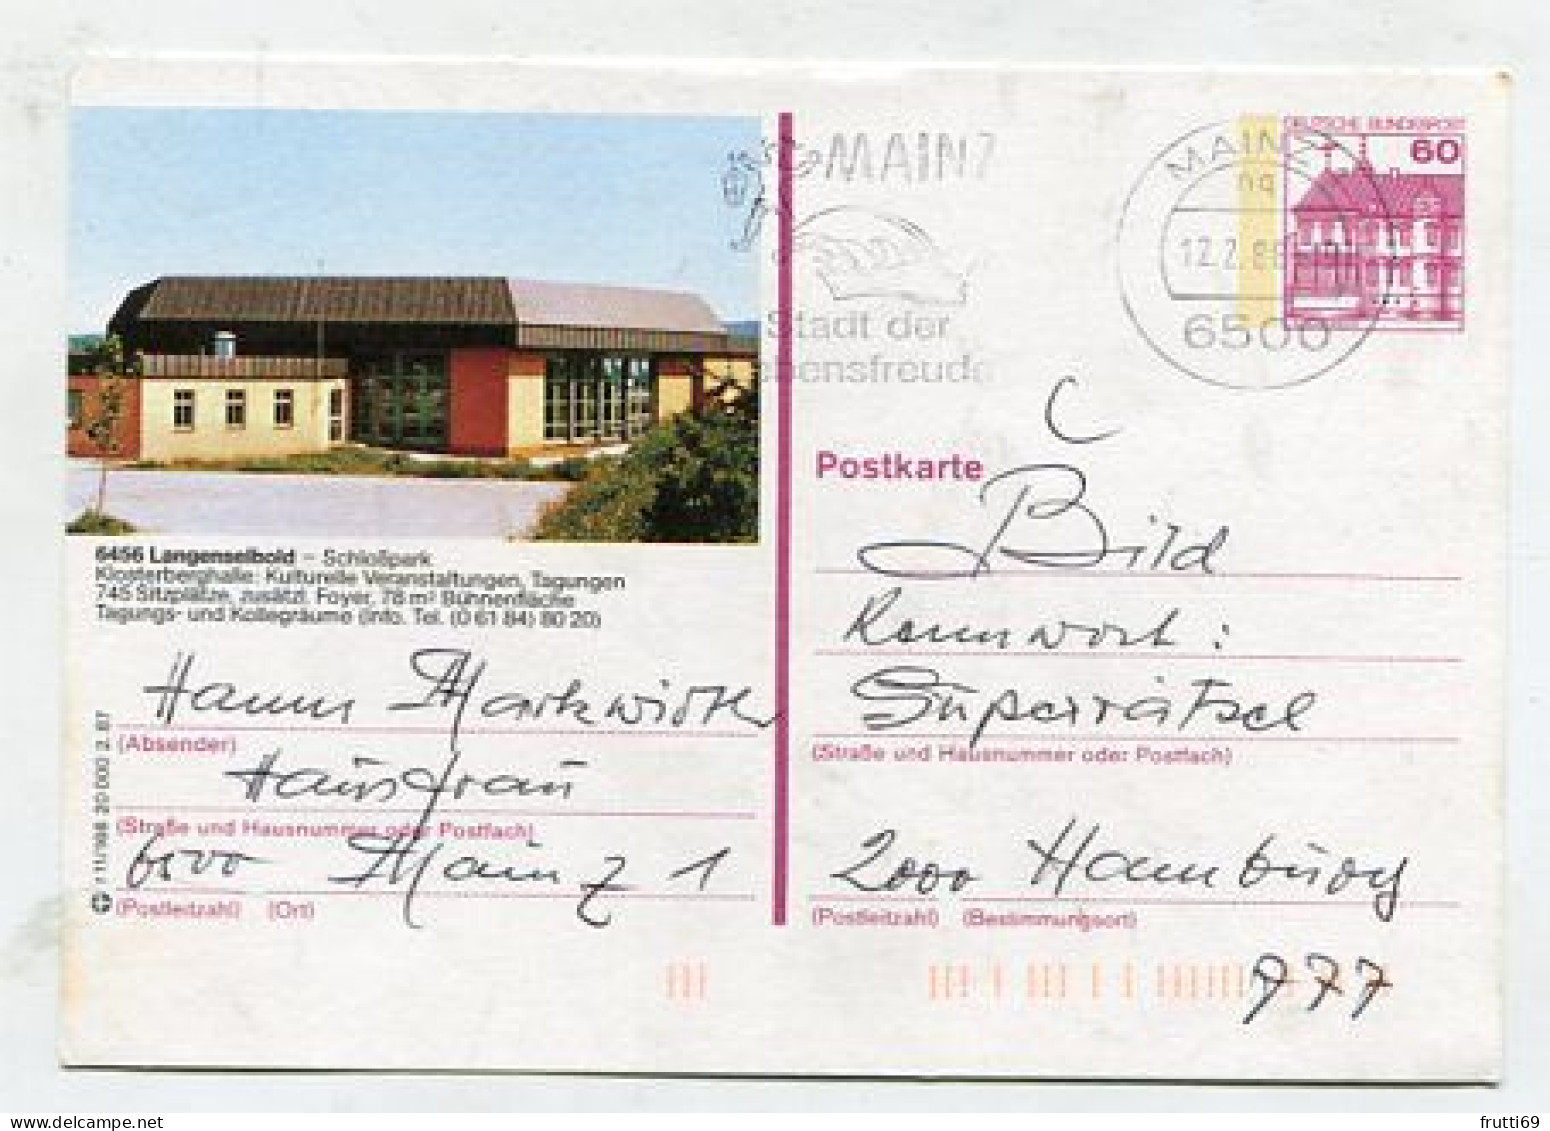 MAINZ
Stadt der
Lebensfreude
MAINZ
6500
DEUTSCHE BUNDESPOST
60
Postkarte
C
Bild
Kennwort:
Superrätsel
(Straße und Hausnummer oder Postfach)
2000 Hamburg
(Postleitzahl) (Bestimmungsort)
777
6456 Langenselbold – Schloßpark
Klosterberghalle: Kulturelle Veranstaltungen, Tagungen
745 Sitzplätze, zusätzl. Foyer, 78 m² Bühnenfläche
Tagungs- und Kollegräume (Info. Tel. (0 61 84) 80 20)
Markwirth
(Absender)
Hausfrau
(Straße und Hausnummer oder Postfach)
6500 Mainz 1
(Postleitzahl) (Ort)
r 11/168 20 000 2.87
frutti69